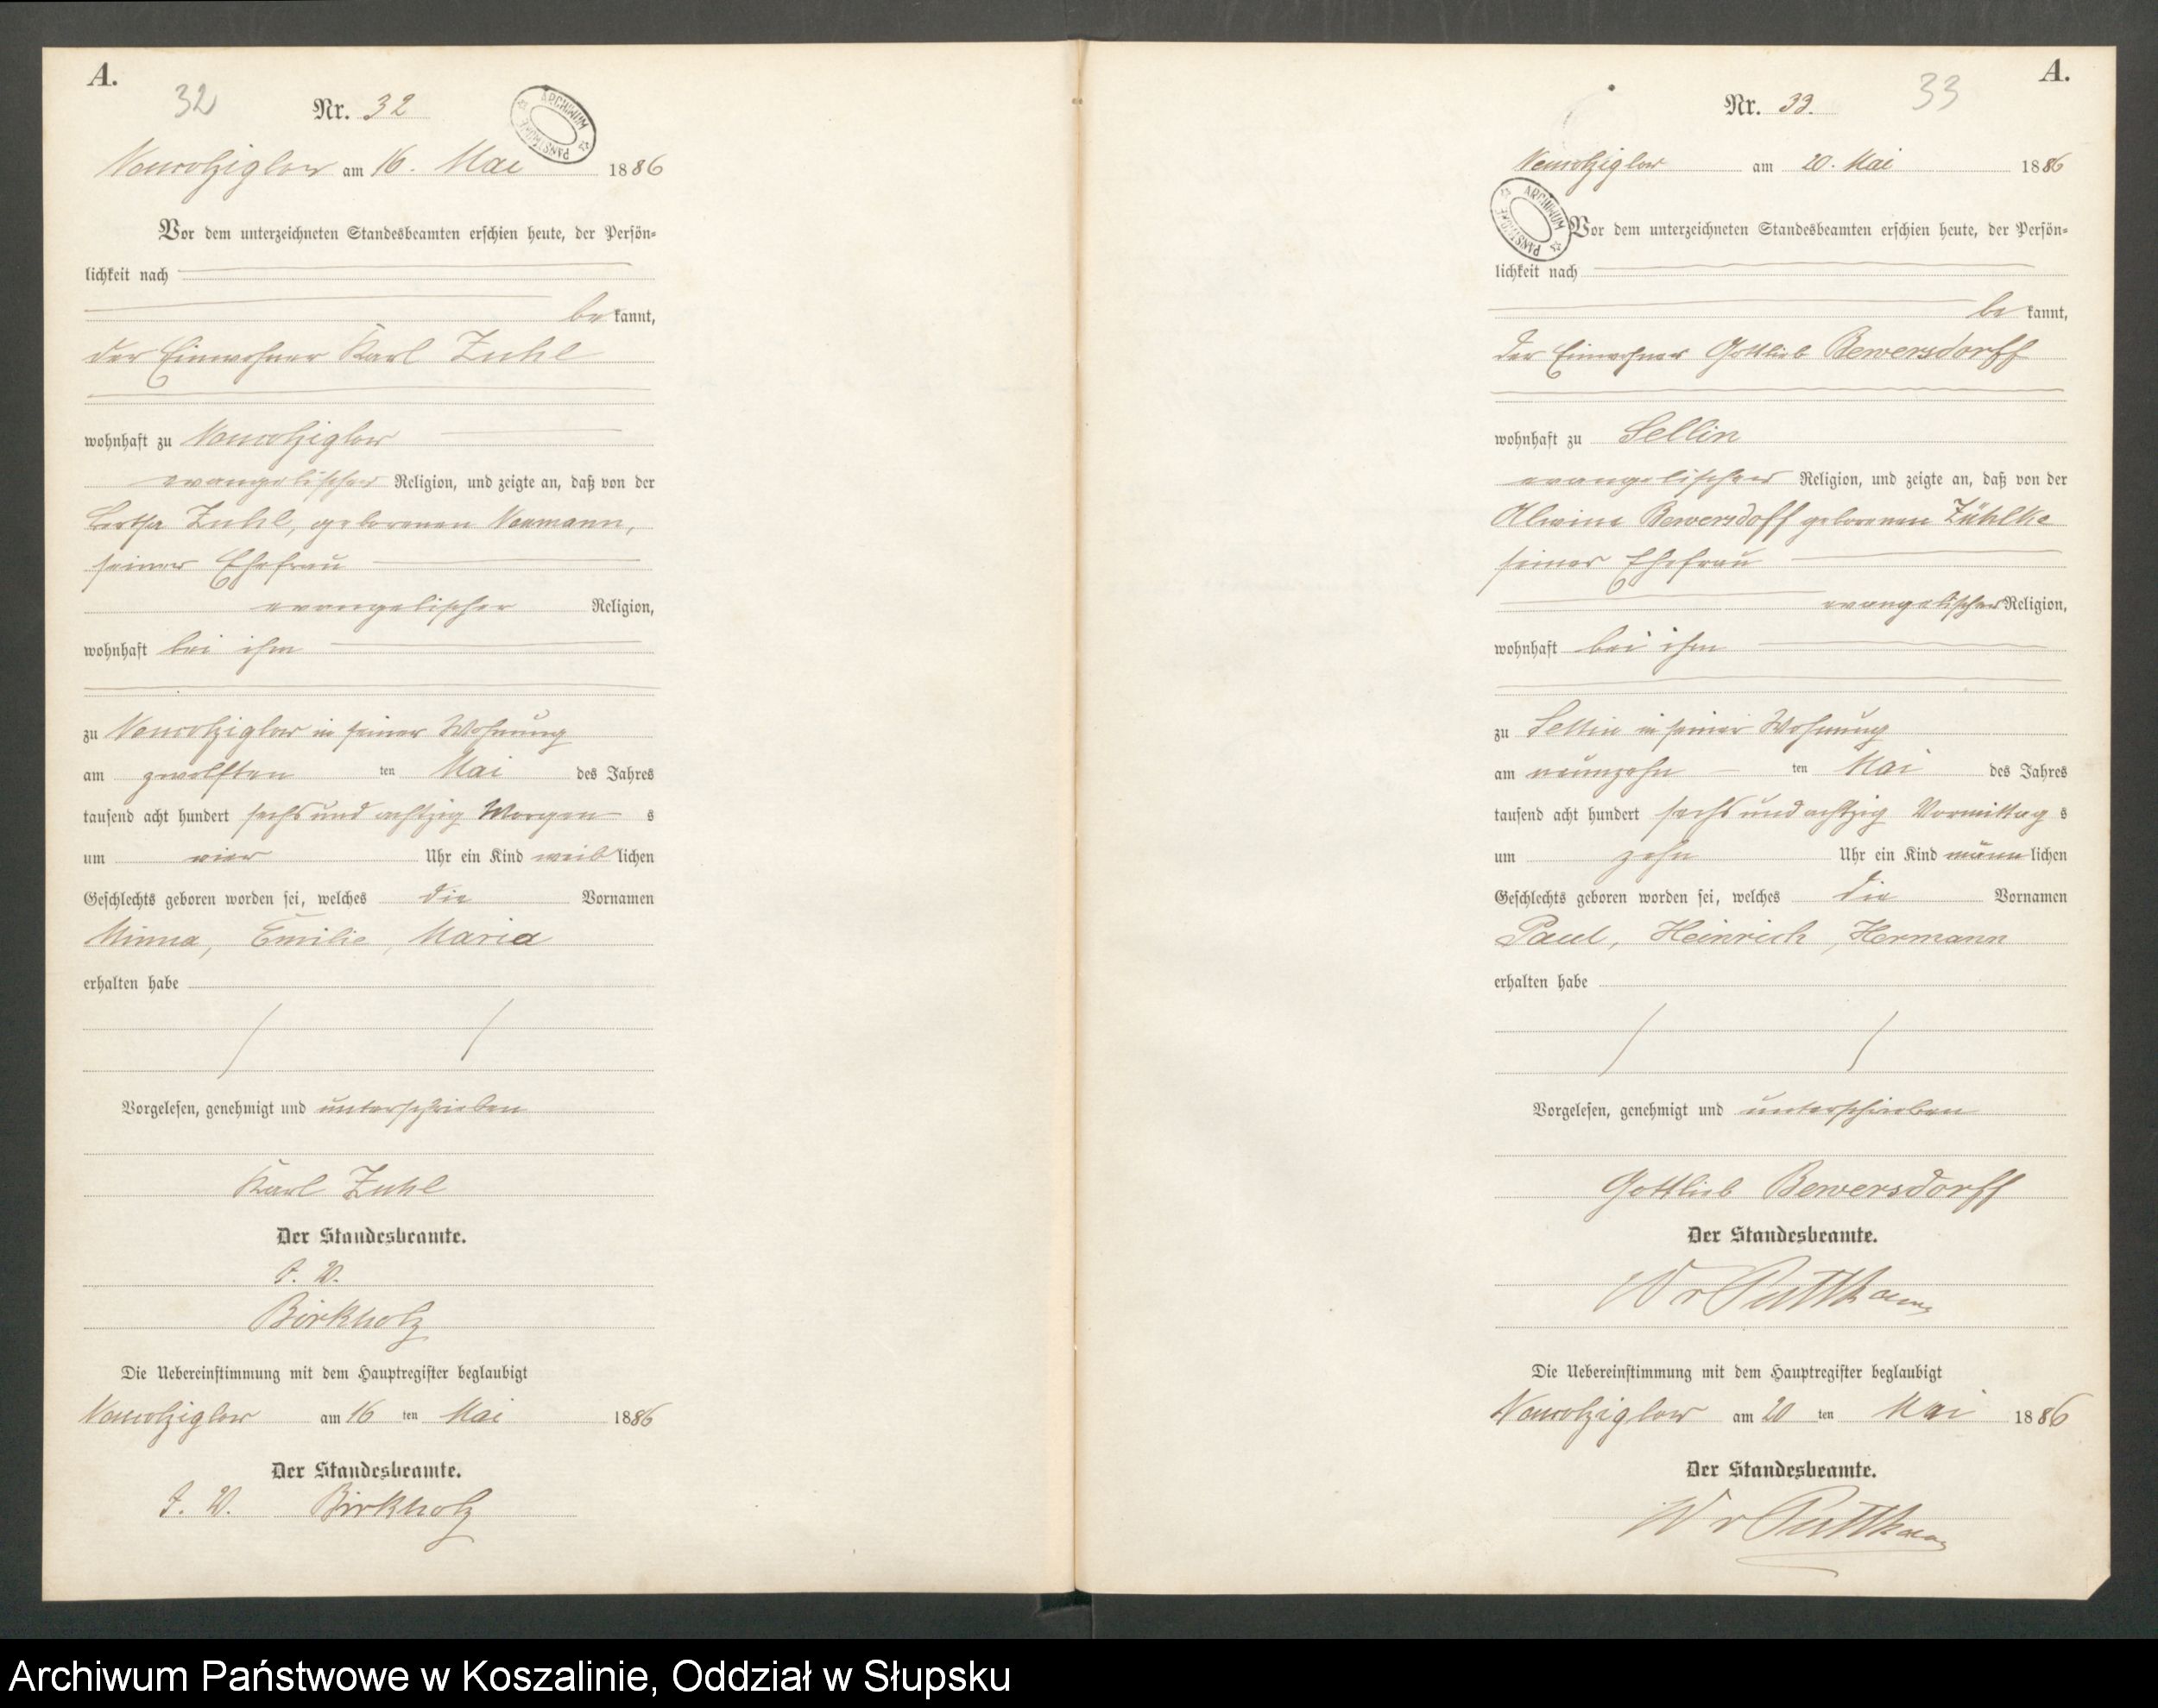 A.
32
Nr. 32
ARCHIWUM PAŃSTWOWE
Neuwohziglow am 16. Mai 1886
Vor dem unterzeichneten Standesbeamten erschien heute, der Persön-
lichkeit nach
be kannt,
der Einwohner Karl Zuhl
wohnhaft zu
evangelischer Religion, und zeigte an, daß von der
Bertha Zuhl, geborenen Neumann,
seiner Ehefrau
evangelischer Religion,
wohnhaft bei ihm
zu in seiner Wohnung
am zwölften ten Mai des Jahres
tausend acht hundert sechs und achtzig Morgen s
um vier Uhr ein Kind weib lichen
Geschlechts geboren worden sei, welches die Vornamen
Minna, Emilie, Maria
erhalten habe
Vorgelesen, genehmigt und unterschrieben
Karl Zuhl
Der Standesbeamte.
I. V.
Birkholz
Die Uebereinstimmung mit dem Hauptregister beglaubigt
am 16 ten Mai 1886
Der Standesbeamte.
I. V. Birkholz
A.
33
Nr. 33.
am 20. Mai 1886
ARCHIWUM PAŃSTWOWE
Vor dem unterzeichneten Standesbeamten erschien heute, der Persön-
lichkeit nach
be kannt,
der Einwohner Gottlieb Bewersdorff
wohnhaft zu Sellin
evangelischer Religion, und zeigte an, daß von der
Alwine Bewersdoff geborenen Zühlke
seiner Ehefrau
evangelischer Religion,
wohnhaft bei ihm
zu Sellin in seiner Wohnung
am neunzehn ten Mai des Jahres
tausend acht hundert sechs und achtzig Vormittag s
um zehn Uhr ein Kind männ lichen
Geschlechts geboren worden sei, welches die Vornamen
Paul, Heinrich, Hermann
erhalten habe
Vorgelesen, genehmigt und unterschrieben
Gottlieb Bewersdorff
Der Standesbeamte.
W v Puttkamer
Die Uebereinstimmung mit dem Hauptregister beglaubigt
am 20 ten Mai 1886
Der Standesbeamte.
W v Puttkamer
Archiwum Państwowe w Koszalinie, Oddział w Słupsku